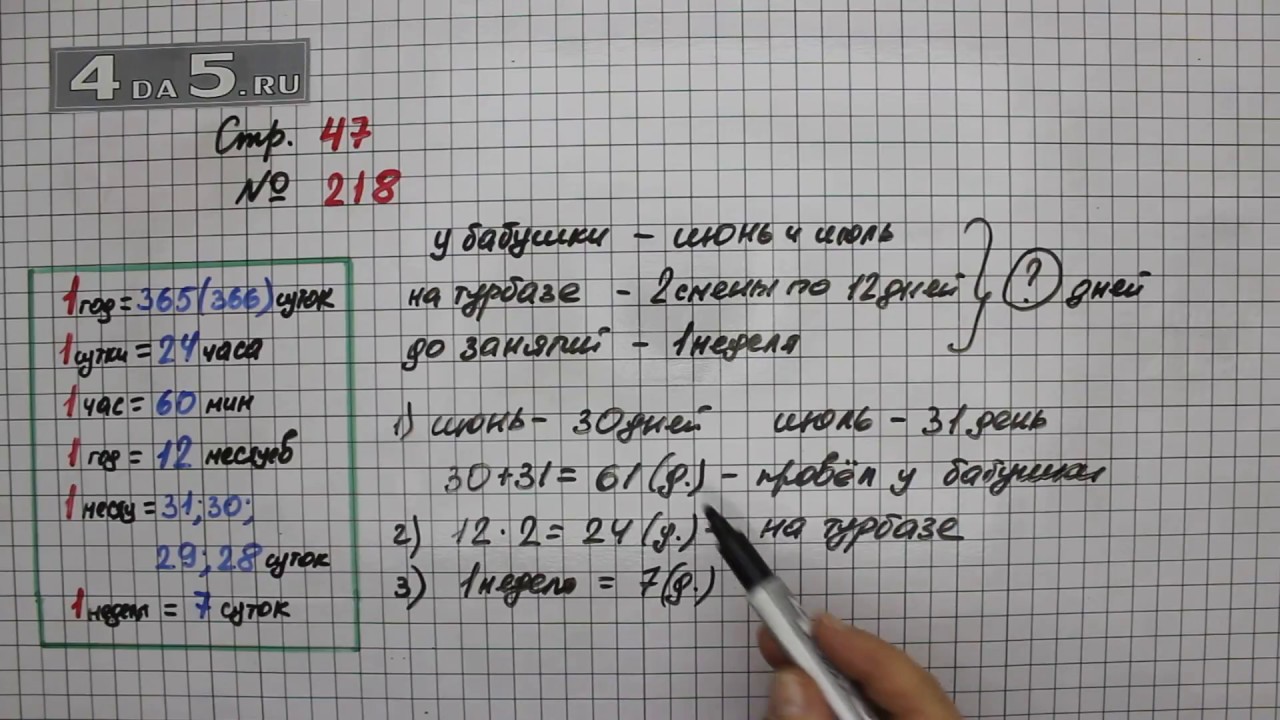 4DA5.RU
Стр. 47
№ 218
у бабушки - июнь и июль
на турбазе - 2 смены по 12 дней
? дней
до занятий - 1 неделя
1 год = 365 (366) суток
1 сутки = 24 часа
1 час = 60 мин
1 год = 12 месяцев
1 месяц = 31; 30;
29; 28 суток
1 неделя = 7 суток
1) июнь - 30 дней июль - 31 день
30 + 31 = 61 (д.) - провёл у бабушки
2) 12 · 2 = 24 (д.) - на турбазе
3) 1 неделя = 7 (д.)